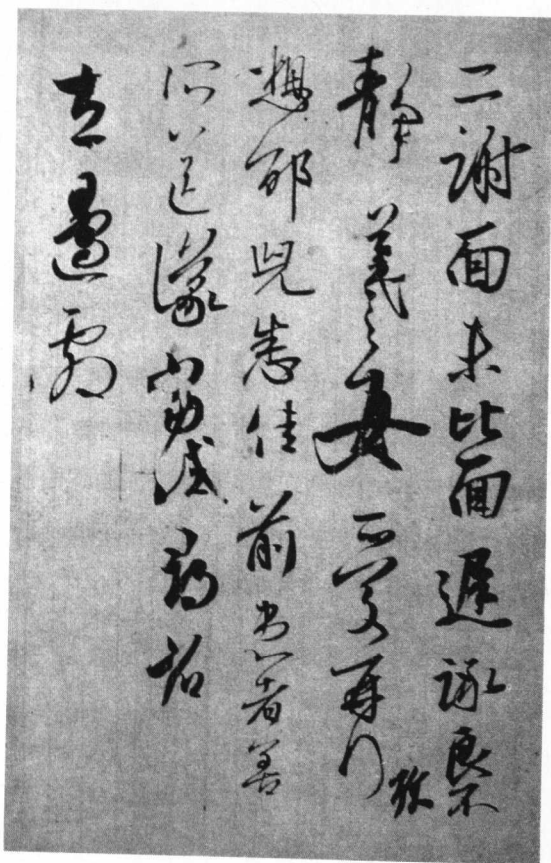 二謝面未比面遲詠良不
靜羲之女愛再拜 珍
想邵兒悉佳前患者善
所送議當試尋省
左邊劇